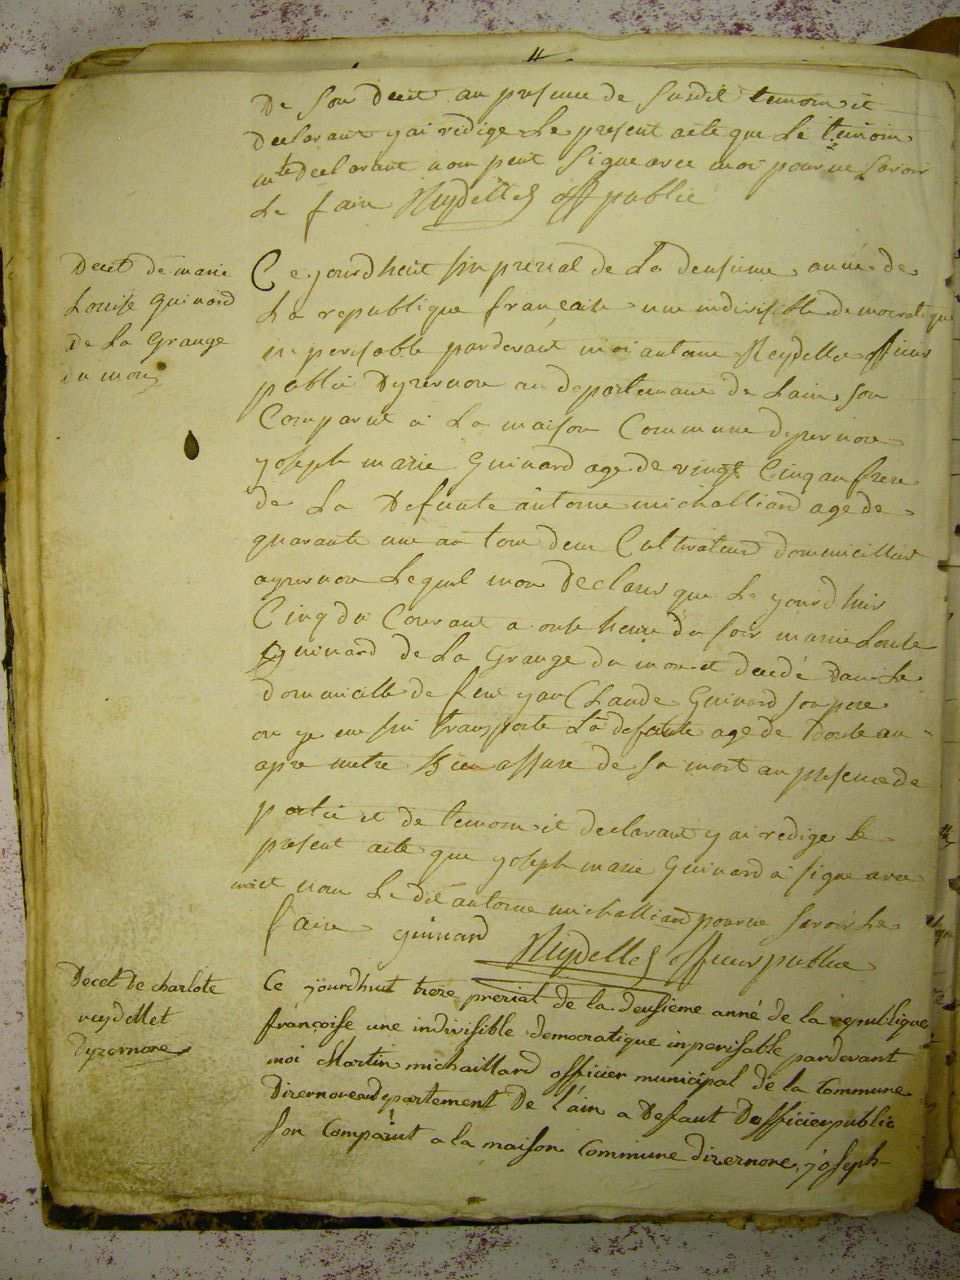 De son decet au presence de susdit temoin et
declarant y ai redige Le present acte que Le temoin
declarant nom peut signe avec moi pour ne savoir
Le faire Reydellet off public
Decet de marie
Louise Guinard
De La Grange
du mon
Ce yourdhuit sin prerial de La deusieme anné de
La republique francaise une indivisible democratique
inperisable pardevant moi antoine Reydellet officier
public Dyzernore au departemant de Lain son
Comparut a La maison Commune dyzernore
yoseph marie Guinard age de vingt Cinq an frere
de La Defunte antoine michalliard age de
quarante une an tous deux Cultivateurs domicillies
ayzernore Lequel mon Declares que Le yourdhuis
Cinq du Courant a onse heure du soir marie Louise
Guinard de La Grange du mon et decedé dans Le
domicille de feue yan Claude Guinard son pere
ou ye me sui transporte La defunte age de douse an
apre metre Bien assure de sa mort au presence de
partie et de temoin et declarant y ai redige Le
present acte que yoseph marie Guinard a signe avec
moi et non Le dit antoine michalliard pour ne savoir Le
faire guinard Reydellet officier public
Decet De charlote
reydellet
Dyzernore
Ce yourdhuit treze prerial de la deusieme anné de la republique
françoise une indivisible democratique inperisable pardevant
moi Martin michaillard officier municipal de la Commune
Dizernore au departement De l'ain a Defaut Dofficier public
son Comparut a la maison Commune dizernore, yoseph